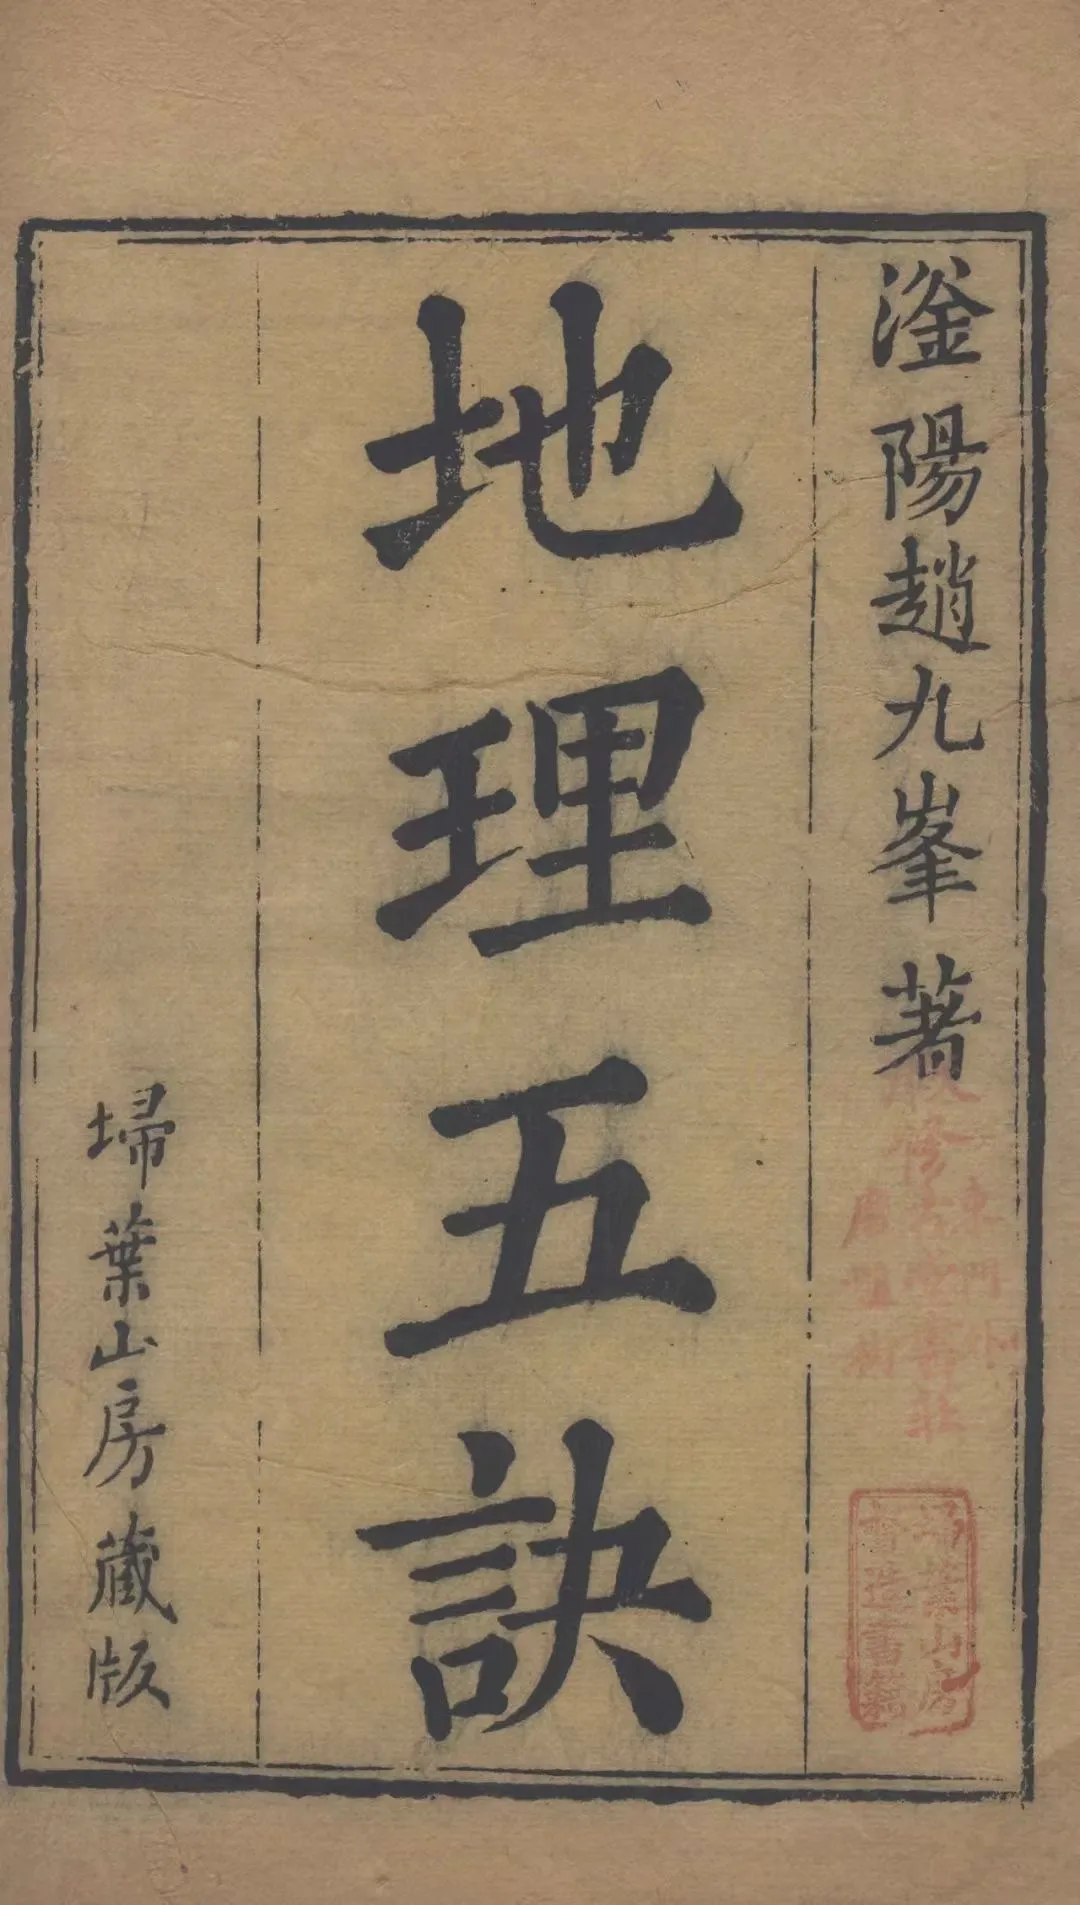 滏陽趙九峯著
地理五訣
埽葉山房藏版
埽葉山房
督造書籍